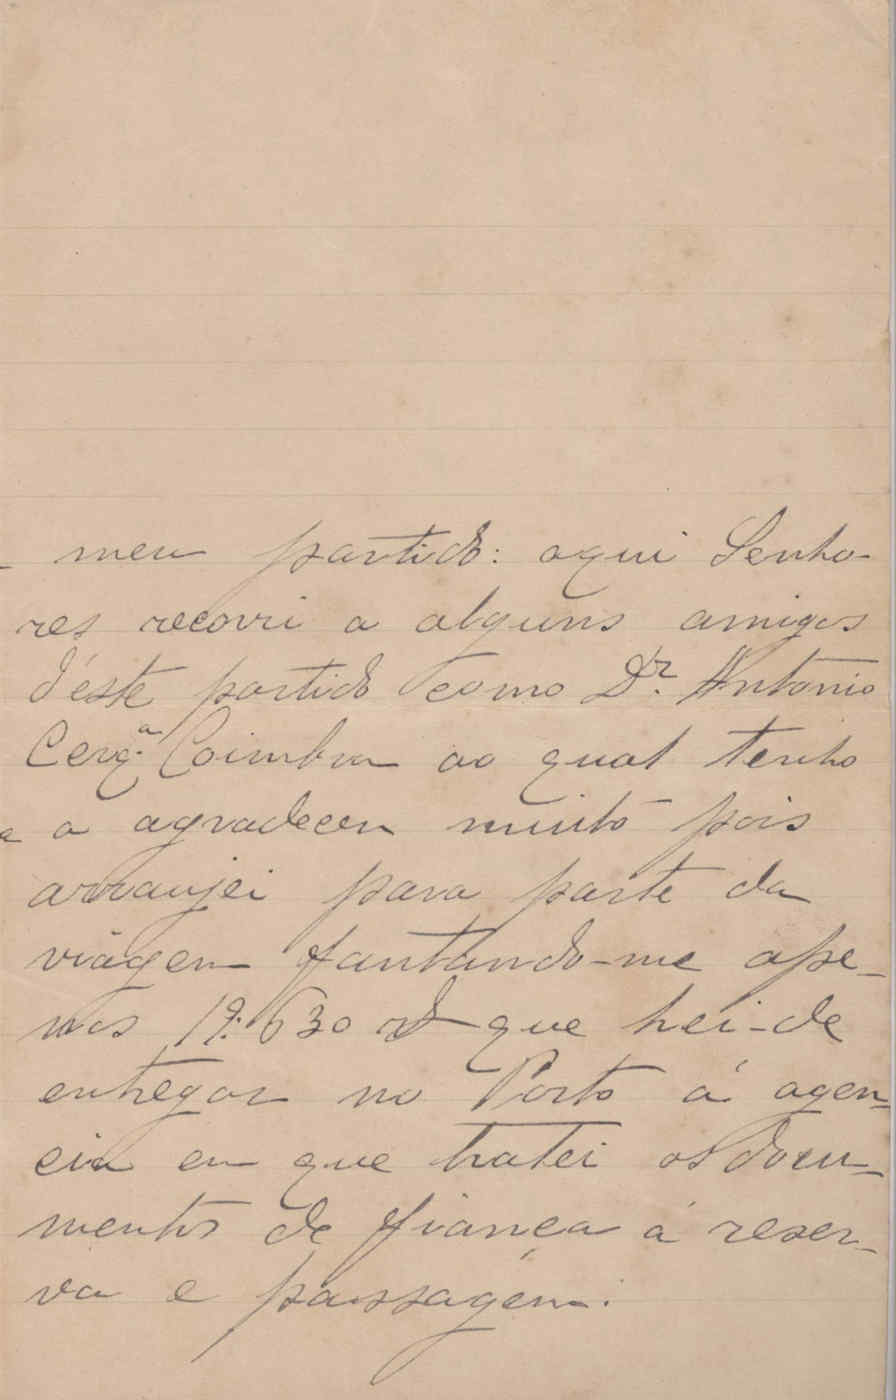 meu partido: aqui Senho-
res recorri a alguns amigos
d'este partido como Dr. Antonio
Cerqª. Coimbra ao qual tenho
a agradecer muito pois
arranjei para parte da
viagem fautando-me ape-
nas 19:630 rs que hei-de
entregar no Porto á agen-
cia em que tratei os docu-
mentos de fiança á reser-
va e passagem.